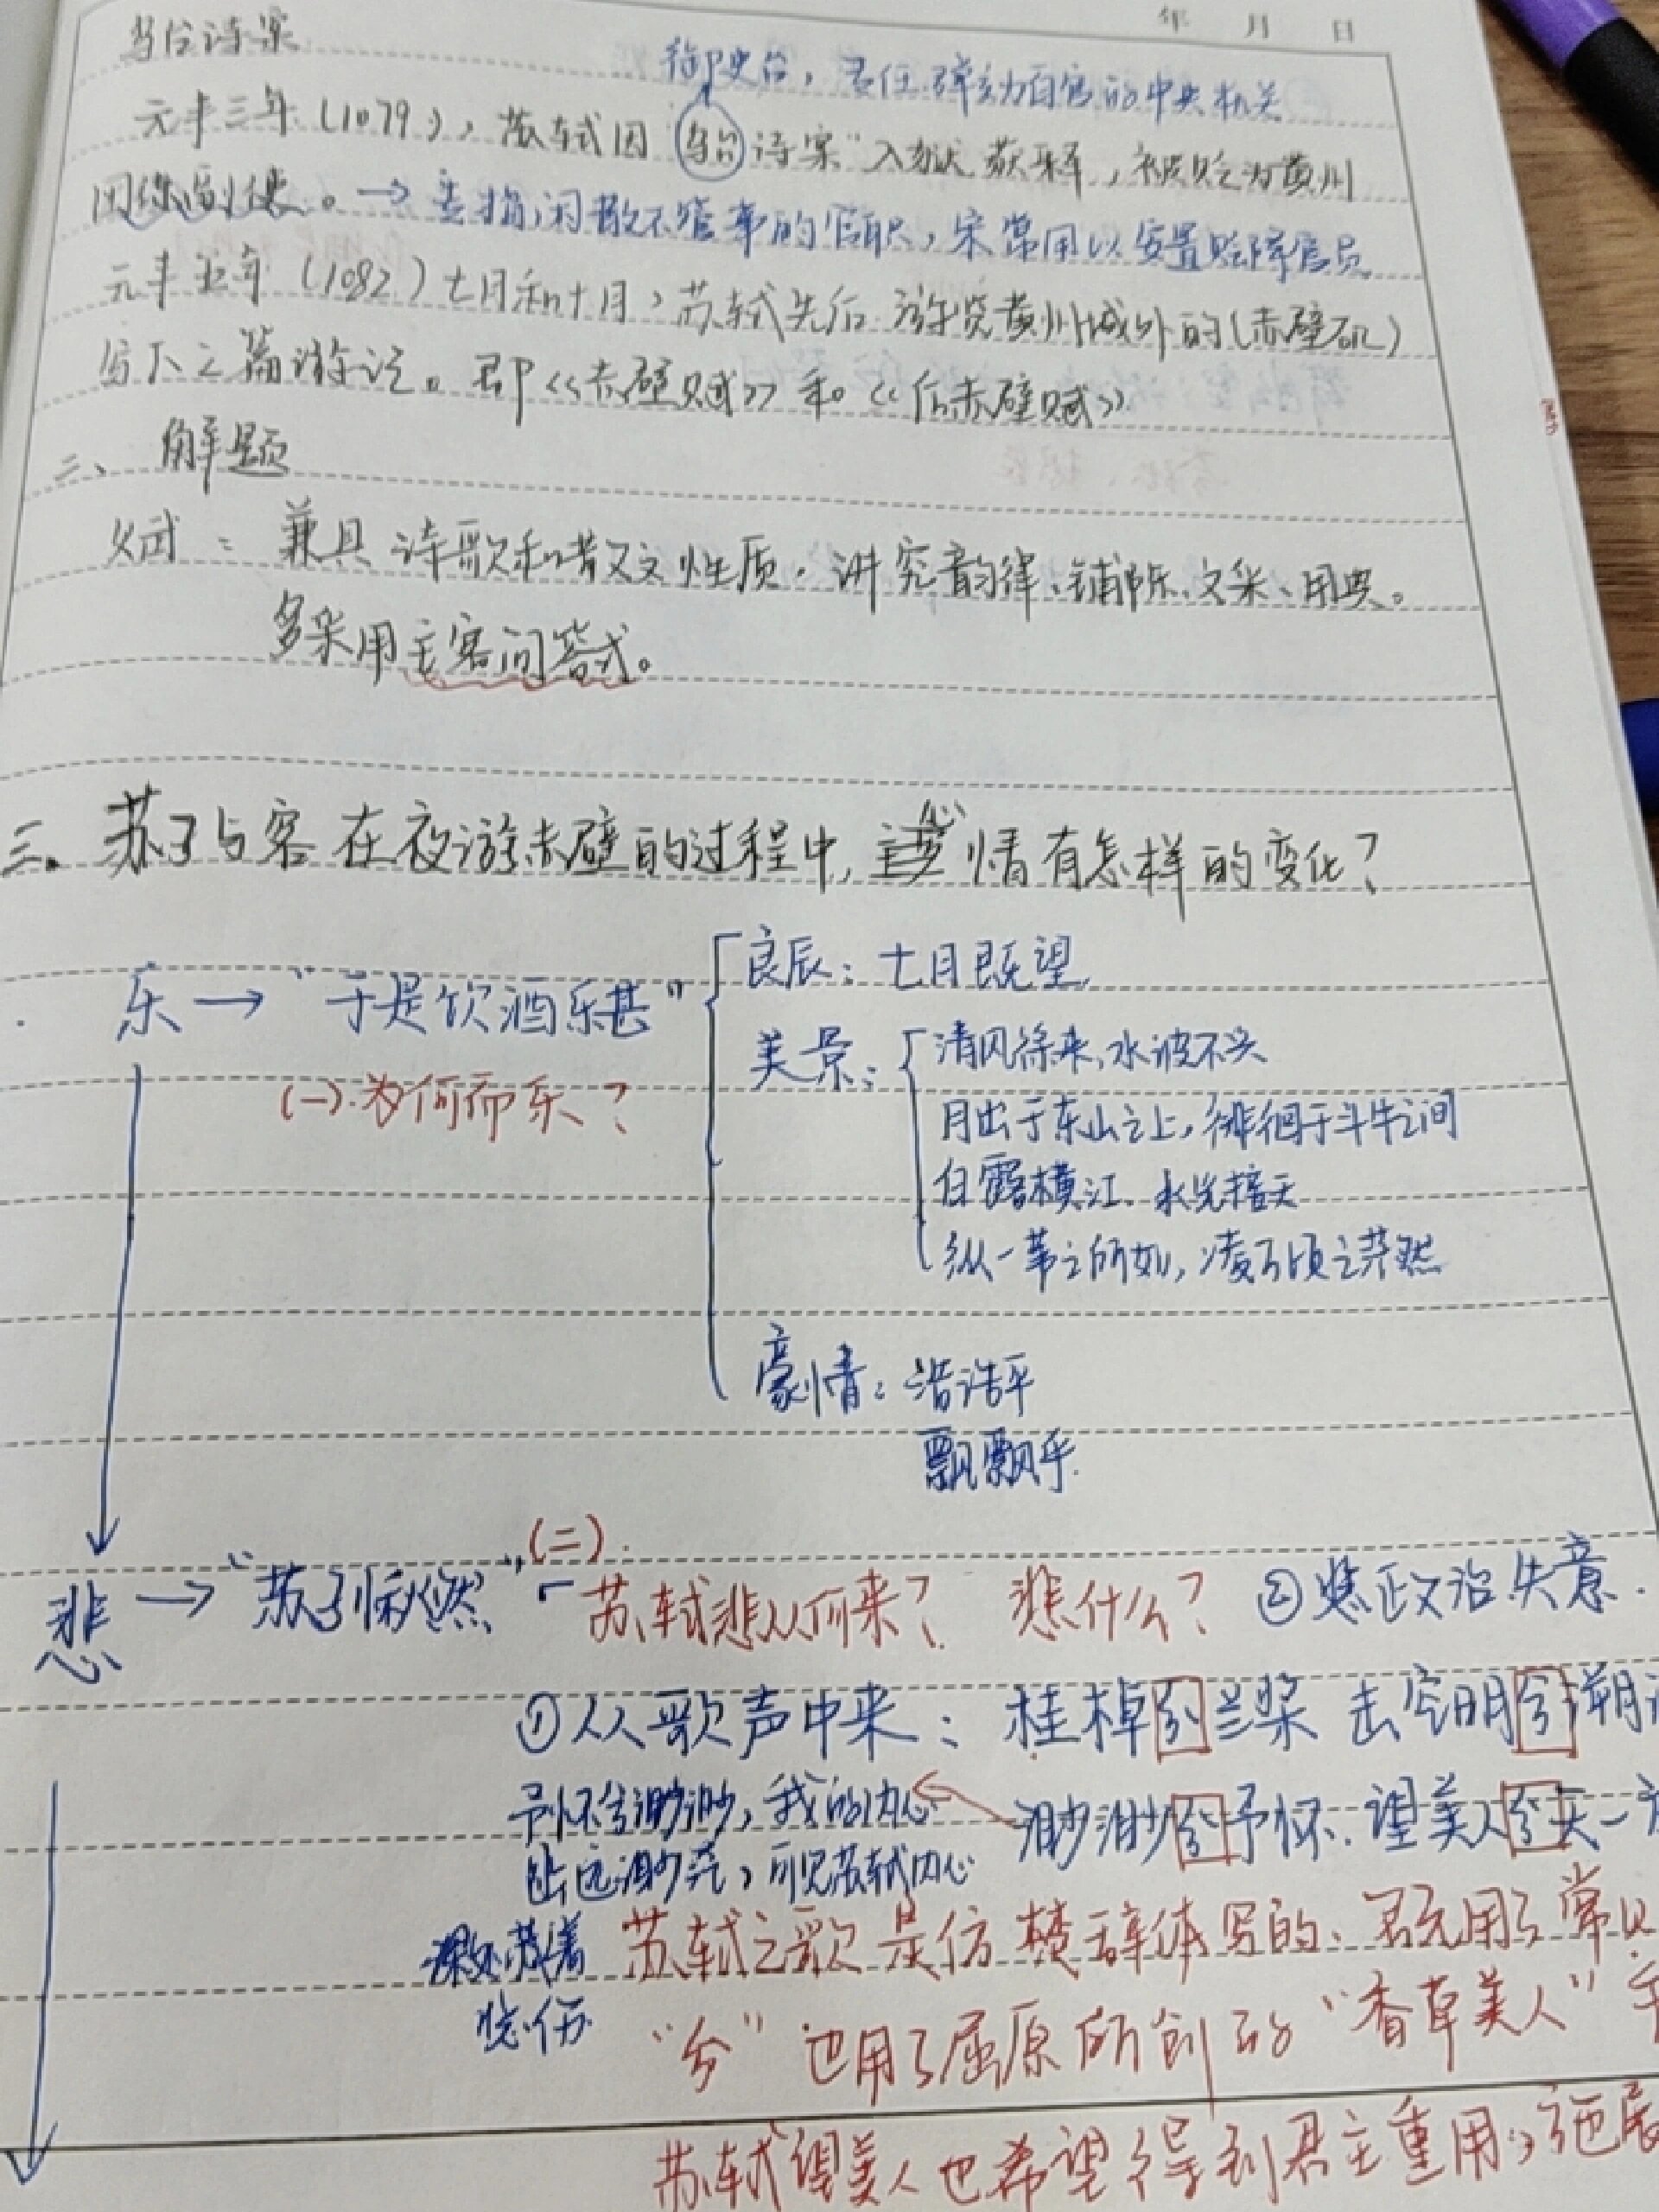 年 月 日
乌台诗案
御史台，责任弹劾百官的中央机关
元丰三年（1079），苏轼因"乌台诗案"入狱获释，被贬为黄州
团练副使。→ 闲散不管事的官职，宋常用以安置贬降官员
元丰五年（1082）七月和十月，苏轼先后游览黄州城外的（赤壁矶）
写下二篇游记。即《赤壁赋》和《后赤壁赋》
二、解题
文赋：兼具诗歌和散文性质，讲究韵律、铺陈、文采、用典。
多采用主客问答式。
三、苏子与客在夜游赤壁的过程中，心情有怎样的变化？
乐→"于是饮酒乐甚"
(一).为何而乐？
良辰：七月既望
美景：清风徐来，水波不兴
月出于东山之上，徘徊于斗牛之间
白露横江、水光接天
纵一苇之所如，凌万顷之茫然
豪情：浩浩乎
飘飘乎
悲→"苏子愀然"
(二).苏轼悲从何来？ 悲什么？ ②悲政治失意.
①从歌声中来：桂棹兮兰桨 击空明兮溯
渺渺兮予怀.望美人兮天一方
予怀兮渺渺，我的内心
悠远渺茫，可见苏轼内心
悲伤
苏轼之歌是仿楚辞体写的、用了常见
"兮"也用了屈原所创的"香草美人"
苏轼望美人也希望得到君主重用，施展